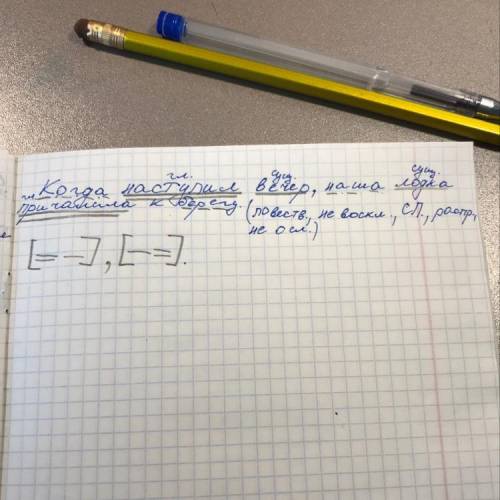 гл. сущ. сущ.
Когда наступил вечер, наша лодка
гл.
причалила к берегу. (повеств., не воскл., СП., распр.,
не осл.)
[= -], [- =].